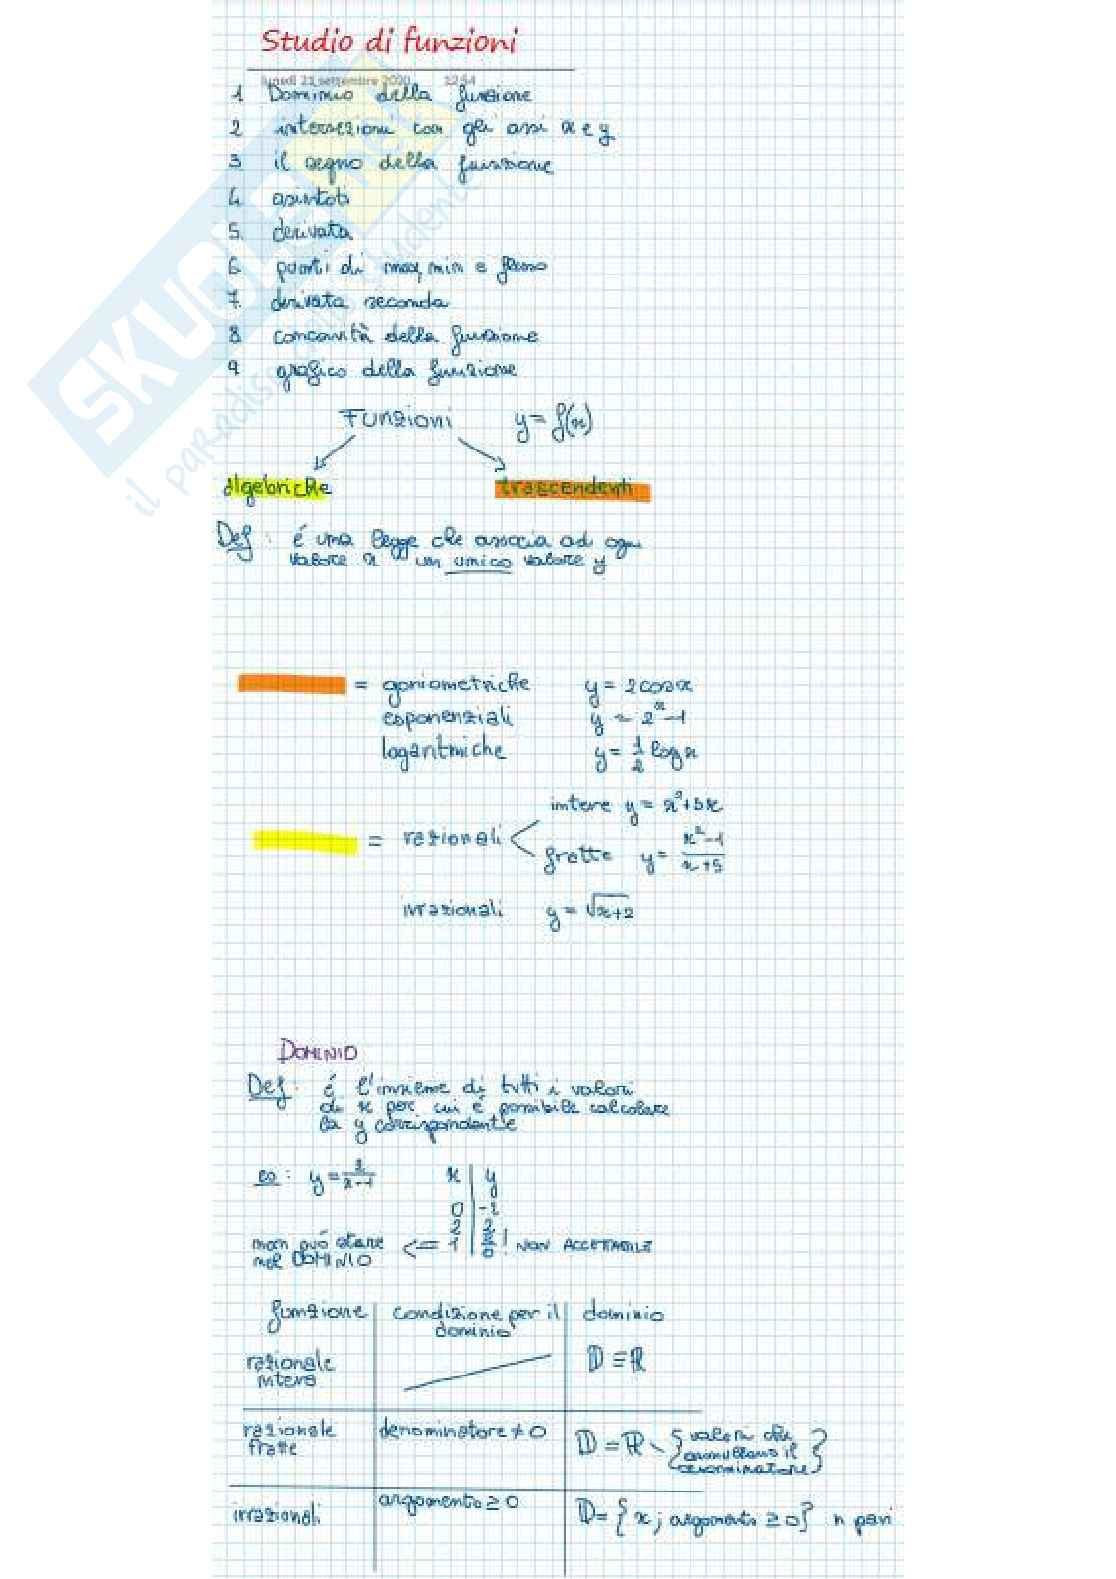 Studio di funzioni
lunedì 21 settembre 2020 12:54
1 Dominio della funzione
2 intersezioni con gli assi x e y
3. il segno della funzione
4 asintoti
5. derivata
6 punti di max, min e flesso
7. derivata seconda
8 concavità della funzione
9 grafico della funzione
Funzioni y = f(x)
algebriche trascendenti
Def: é una legge che associa ad ogni
valore x un unico valore y
= goniometriche y = 2cosx
esponenziali y = 2^x-1
logaritmiche y = 1/2 log x
= razionali
intere y = x²+5x
fratte y = x²-1/x+5
irrazionali y = √x+2
DOMINIO
Def: é l'insieme di tutti i valori
di x per cui é possibile calcolare
la y corrispondente
es: y = 2/x-1 x y
0 -2
2 2
non può stare <= 1 2/0! NON ACCETTABILE
nel DOMINIO
funzione condizione per il dominio dominio
razionale intera D ≡ R
razionale fratte denominatore ≠ 0 D = R \ {valori che annullano il denominatore}
irrazionali argomento ≥ 0 D = {x; argomento ≥ 0} n pari
SKUOLA.net
il paradiso dello studente